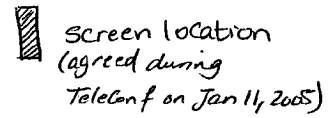 screen location
(agreed during
TeleConf on Jan 11, 2005)